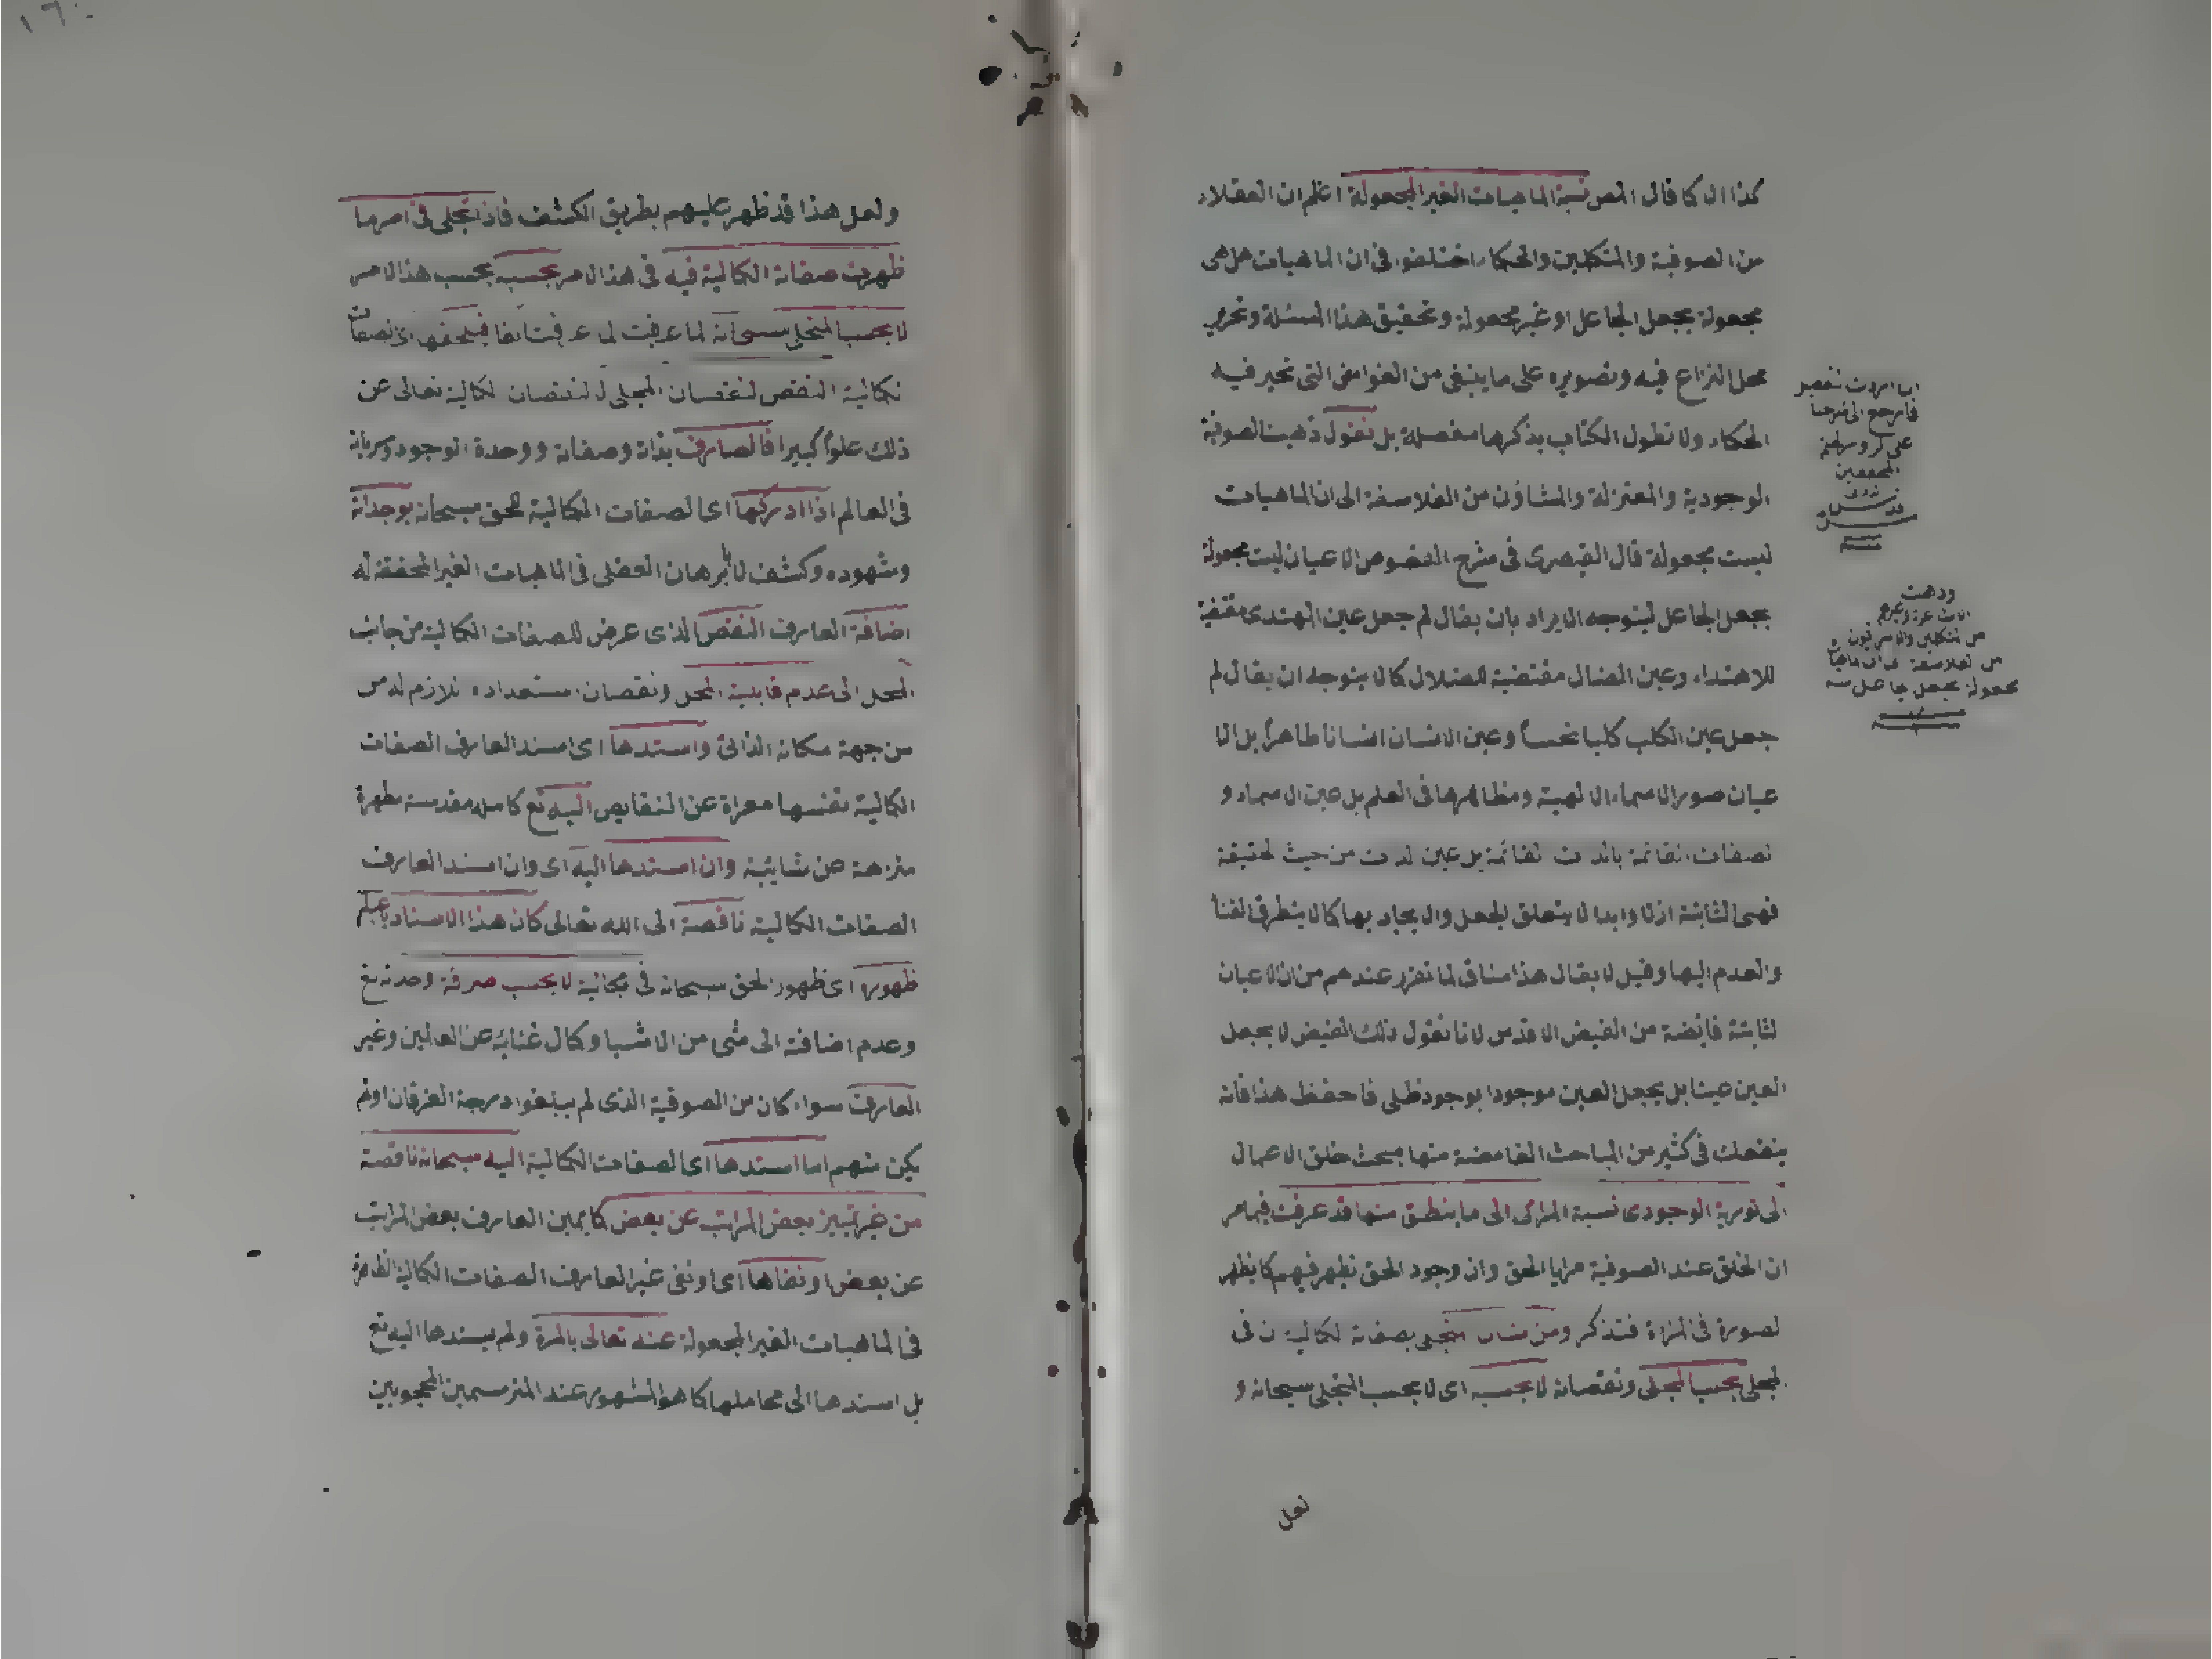 كذا الكا قال المص نسبة الماهيات الغير المجعولة اعلم ان العقلاء
من الصوفية والمتكلمين والحكماء اختلفوا في ان الماهيات هل هى
مجعولة بجعل الجاعل او غير مجعولة وتحقيق هذا المسئلة وتحرير
محل النزاع فيه وتصويره على ما ينبغى من الغوامض التى تحير فيه
الحكماء ولا نطول الكتاب بذكرها مفصلة بل نقول ذهبت الصوفية
الوجودية والمعتزلة والمشاؤن من الفلاسفة الى ان الماهيات
ليست مجعولة قال القيصرى فى شرح الفصوص الاعيان ليت مجعولة
بجعل الجاعل ليتوجه الايراد بان يقال لم جعل عين المهتدى مقتضية
للاهتداء وعين الضال مقتضية للضلال كما لا يتوجه ان يقال لم
جعل عين الكلب كلبا نجسا وعين الانسان انسانا طاهرا بل الا
عيان صور الاسماء الالهية ومظاهرها فى العلم بل عين الاسماء و
لصفات القائمة بالذات القائمة بل عين الذات من حيث الحقيقة
فهى الثابتة ازلا وابدا لا يتعلق الجعل والايجاد بها كما لا يتطرق الفنا
والعدم اليها وقيل لا يقال هذا مناف لما تقرر عندهم من ان الاعيان
لثابتة فايضة من الفيض الاقدس لانا نقول ذلك الفيض لا بجعل
العين عينا بل بجعل العين موجودا بوجود ظلى فاحفظ هذا فانه
ينفعك فى كثير من المباحث الغامضة منها مبحث خلق الاعمال
الى نوريه الوجودى نسبة المراى الى ما ينطبق منها قد عرفت فيما مر
ان الخلق عند الصوفية مرايا الحق وان وجود الحق يظهر فيهم كما يظهر
لصورة فى المراة فتذكر ومن شان المتجلى بصفاته الكمالية ان فى
لمجلى بحسب المجلى ونقصانه لا بحسبه اى لا بحسب المتجلى سبحانه و
لعل
ان اردت تفصيل
فارجع الى شرحنا
على
المحققين
قدس سره
منه
وذهبت
الاشاعرة وغيرهم
من المتكلمين والاشراقيون
من الفلاسفة الى ان الماهيات
مجعولة بجعل جاعل منه
١٦٠
ولعل هذا قد ظهر عليهم بطريق الكشف فاذا تجلى فى امر ما
ظهرت صفاته الكمالية فيه فى هذا الامر بحسبه بحسب هذا الامر
لا بحسب المتجلى سبحانه لما عرفت لما عرفت انفا فيلحقها اى الصفات
الكمالية النقص لنقصان المجلى لا لنقصان الكمالية تعالى عن
ذلك علوا كبيرا فالعارف بذاته وصفاته ووحدة الوجود وسريانه
فى العالم اذا ادركها اى الصفات الكمالية للحق سبحانه بوجدانه
وشهوده وكشف لا بالبرهان العقلى فى الماهيات الغير المحققة له
اضافة العارف النقص الذى عرض للصفات الكمالية من جانب
المحل الى عدم قابلية المحل ونقصان استعداده اللازم له من
من جهة مكانه الذاتى واسندها اى اسند العارف الصفات
الكمالية نفسها معراة عن النقايص اليه تع كاملة مقدسة مطهرة
منزهة عن شايبة وان اسندها اليه اى وان اسند العارف
الصفات الكمالية ناقصة الى الله تعالى كان هذا الاسناد باعتبار
ظهوره اى ظهور الحق سبحانه فى مجاليه لا بحسب صرفة وحدته تع
وعدم اضافته الى شىء من الاشيا وكمال غنائه عن العالمين وغير
العارف سواء كان من الصوفية الذى لم يبلغوا درجة العرفان او لم
يكن منهم اما اسندها اى الصفات الكمالية اليه سبحانه ناقصة
من غير تمييز بعض المراتب عن بعض كما يميز العارف بعض المراتب
عن بعض او نفاها اى او نفى غير العارف الصفات الكمالية الظاهرة
فى الماهيات الغير المجعولة عنه تعالى بالمرة ولم يسندها اليه تع
بل اسندها الى محاملها كما هو المشهور عند المترسمين المحجوبين